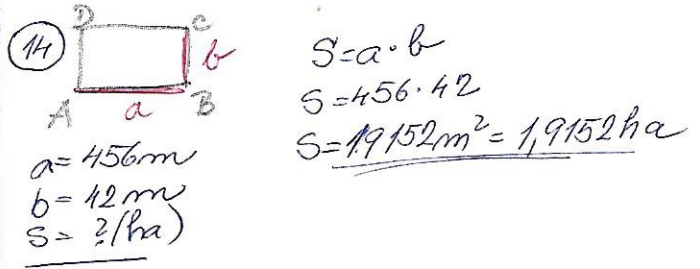 14
D C
b
A a B
a = 456m
b = 42m
S = ? (ha)
S = a · b
S = 456 · 42
S = 19152m² = 1,9152ha